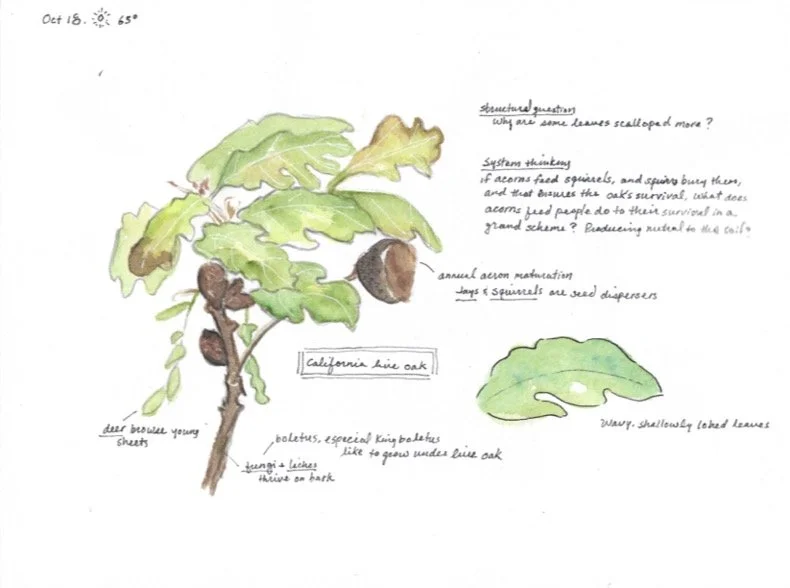 Oct 18. 65°
Structural question
Why are some leaves scalloped more?
System thinking
if acorns feed squirrels, and squirrs bury them,
and that ensures the oak's survival, what does
acorns feed people do to their survival in a
grand scheme? Producing to the soil?
annual acron maturation
Jays & squirrels are seed dispersers
California live oak
Wavy. shallowly lobed leaves
deer browse young
sheets
boletus, especial King boletus
like to grow under live oak
fungi & liches
thrive on bark